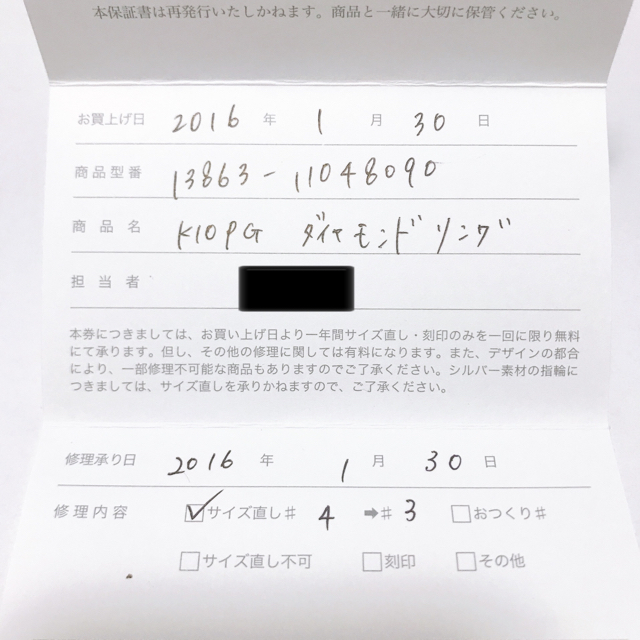 本保証書は再発行いたしかねます。商品と一緒に大切に保管ください。
お買上げ日 2016 年 1 月 30 日
商品型番 13863-11048090
商品名 K10PG ダイヤモンドリング
担当者
本券につきましては、お買い上げ日より一年間サイズ直し・刻印のみを一回に限り無料
にて承ります。但し、その他の修理に関しては有料になります。また、デザインの都合
により、一部修理不可能な商品もありますのでご了承ください。シルバー素材の指輪に
つきましては、サイズ直しを承りかねますので、ご了承ください。
修理承り日 2016 年 1 月 30 日
修理内容 ☑サイズ直し# 4 ➡# 3 □おつくり#
□サイズ直し不可 □刻印 □その他